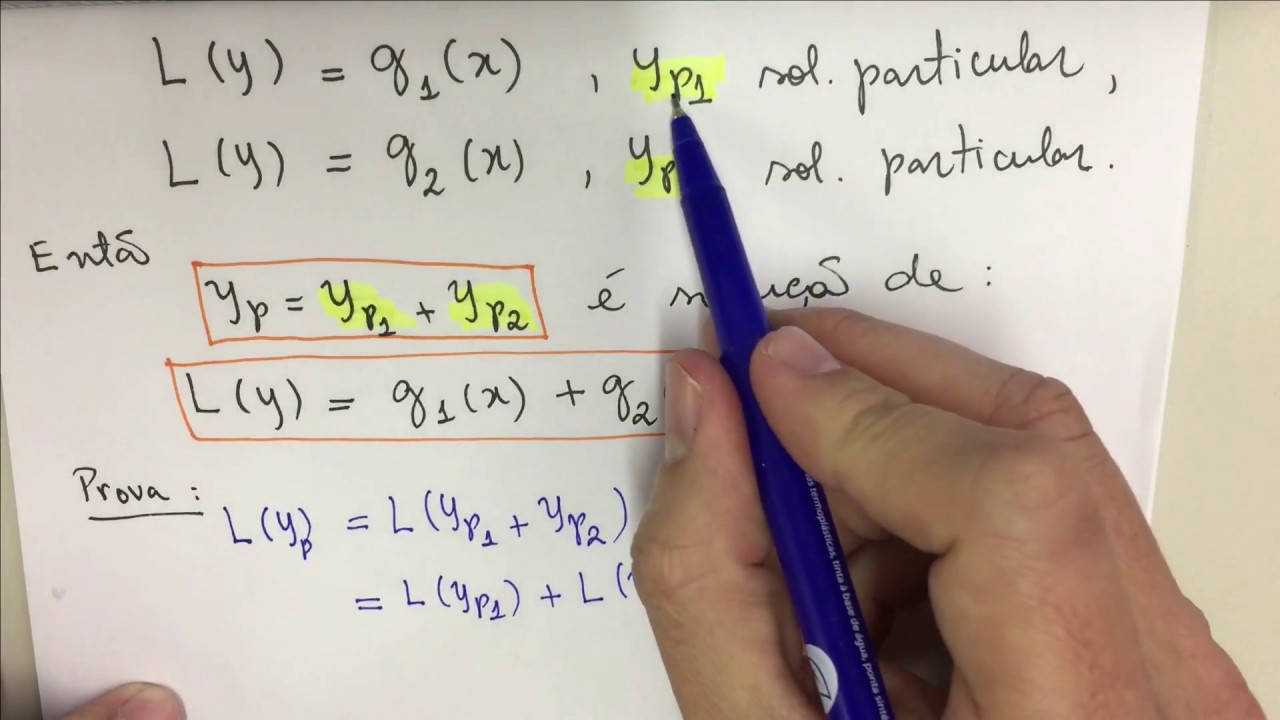 L(y) = g₁(x) , y_p₁ sol. particular,
L(y) = g₂(x) , y_p sol. particular.
Entã
y_p = y_p₁ + y_p₂ é de:
L(y) = g₁(x) + g₂
Prova:
L(y_p) = L(y_p₁ + y_p₂)
= L(y_p₁) + L(
as termoplásticas, tinta à base de água, ponta sinté